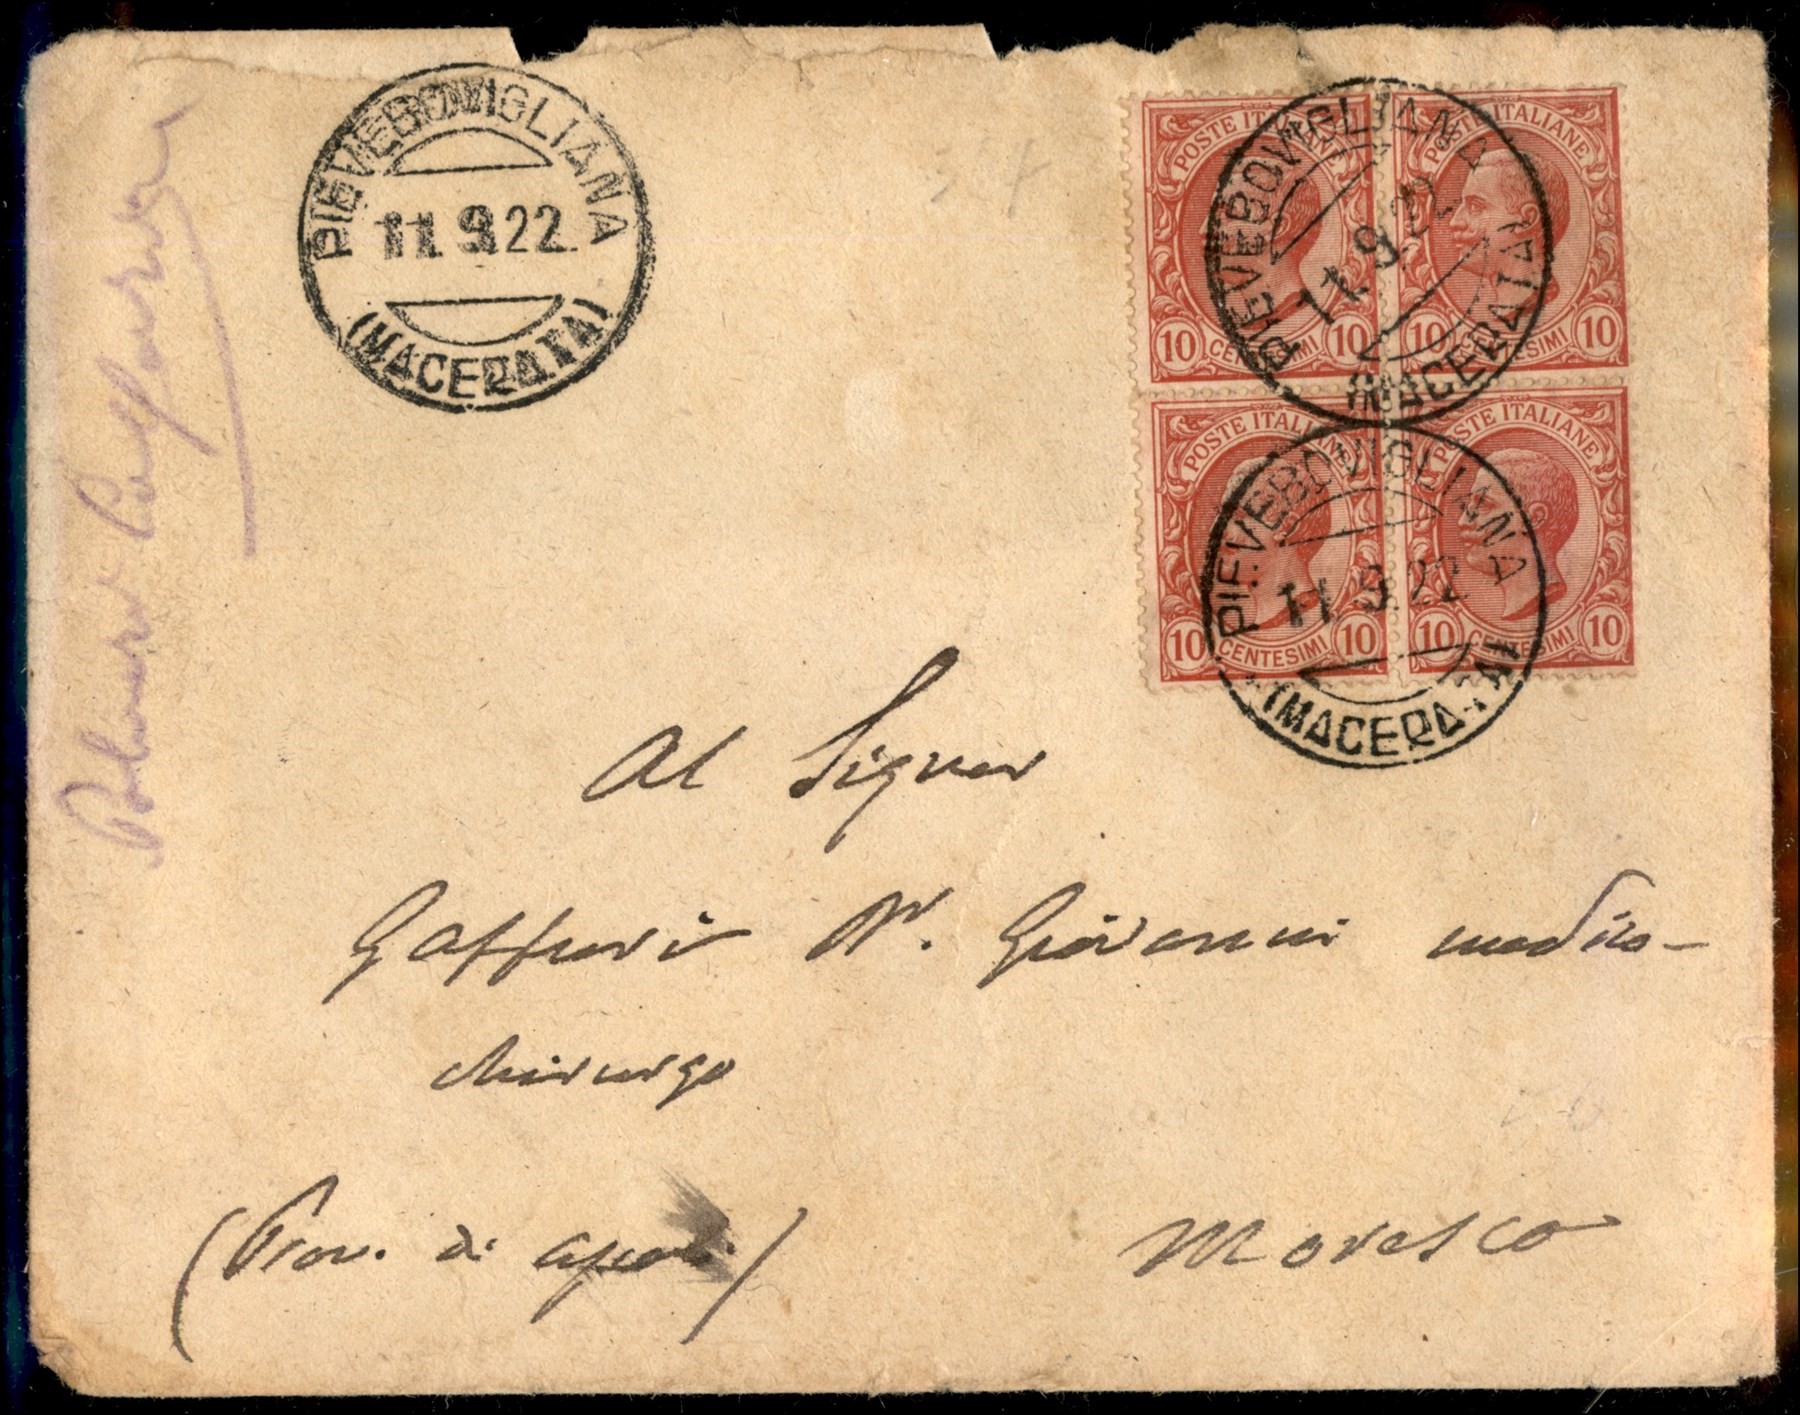 PIEVEBOVIGLIANA
11.9.22
(MACERATA)
POSTE ITALIANE
10 CENTESIMI 10
POSTE ITALIANE
10 CENTESIMI 10
PIEVEBOVIGLIANA
11.9.22
(MACERATA)
POSTE ITALIANE
10 CENTESIMI 10
POSTE ITALIANE
10 CENTESIMI 10
PIEVEBOVIGLIANA
11.9.22
(MACERATA)
Al Signor
Gaffuri Giovanni medico-
chirurgo
(Prov. di Ascoli)
Moresco